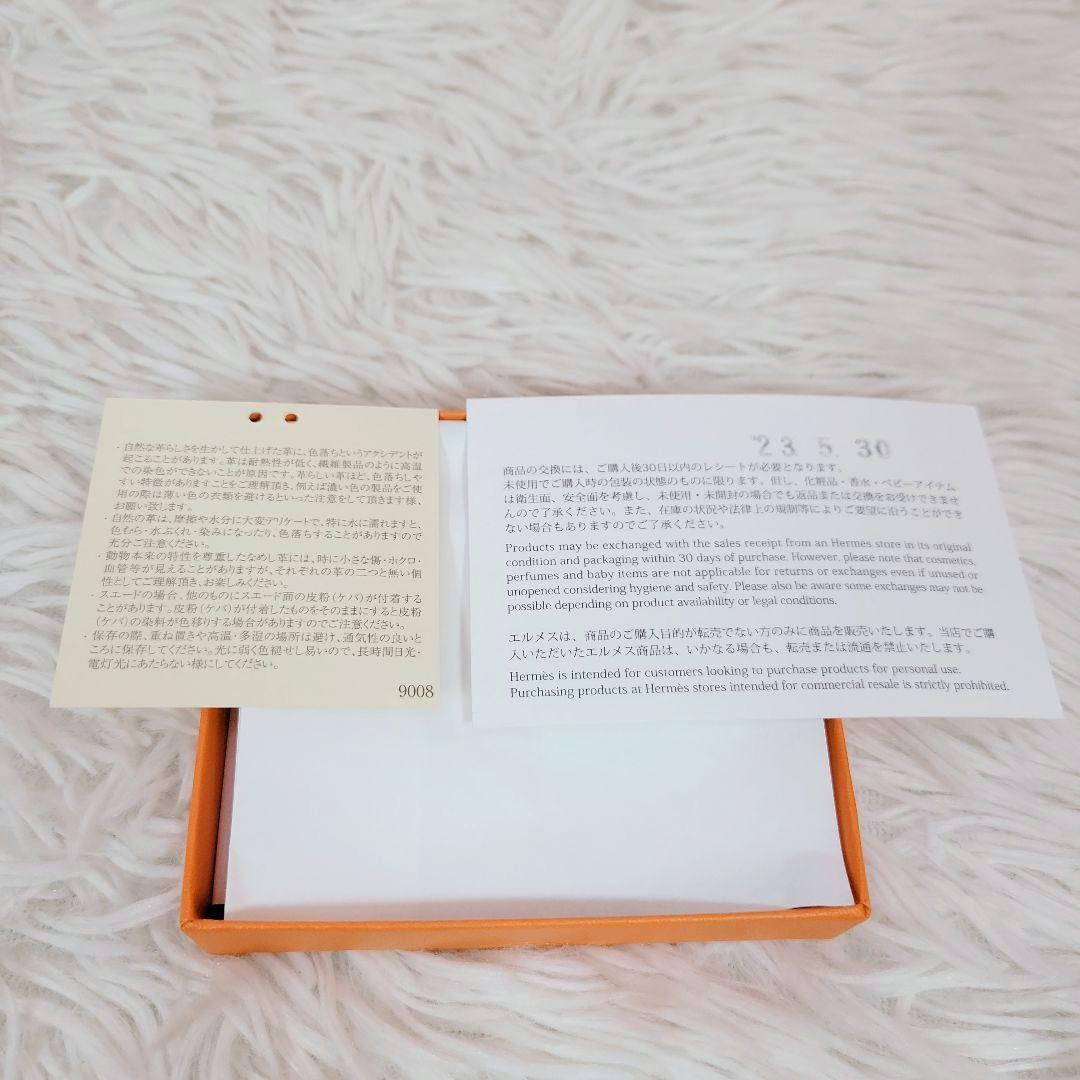 ・自然な革らしさを生かして仕上げた革に、色落ちというアクシデントが
起こることがあります。革は耐熱性が低く、繊維製品のように高温
での染色ができないことが原因です。革らしい革ほど、色落ちしや
すい特徴がありますことをご理解頂き、例えば濃い色の製品をご使
用の際は薄い色の衣類を避けるといった注意をして頂きます様、
お願い致します。
・自然の革は、摩擦や水分に大変デリケートで、特に水に濡れますと、
色むら・水ぶくれ・染みになったり、色落ちすることがありますので
充分ご注意ください。
・動物本来の特性を尊重したなめし革には、時に小さな傷・ホクロ・
血管等が見えることがありますが、それぞれの革の二つと無い個
性としてご理解頂き、お楽しみください。
・スエードの場合、他のものにスエード面の皮粉(ケバ)が付着する
ことがあります。皮粉(ケバ)が付着したものをそのままにすると皮粉
(ケバ)の染料が色移りする場合がありますのでご注意ください。
・保存の際、重ね置きや高温・多湿の場所は避け、通気性の良いと
ころに保存してください。光に弱く色褪せし易いので、長時間日光・
電灯光にあたらない様にしてください。
9008
'23. 5. 30
商品の交換には、ご購入後30日以内のレシートが必要となります。
未使用でご購入時の包装の状態のものに限ります。但し、化粧品・香水・ベビーアイテム
は衛生面、安全面を考慮し、未使用・未開封の場合でも返品または交換をお受けできませ
んので了承ください。また、在庫の状況や法律上の規制等によりご要望に沿うことができ
ない場合もありますのでご了承ください。
Products may be exchanged with the sales receipt from an Hermès store in its original
condition and packaging within 30 days of purchase. However, please note that cosmetics,
perfumes and baby items are not applicable for returns or exchanges even if unused or
unopened considering hygiene and safety. Please also be aware some exchanges may not be
possible depending on product availability or legal conditions.
エルメスは、商品のご購入目的が転売でない方のみに商品を販売いたします。当店でご購
入いただいたエルメス商品は、いかなる場合も、転売または流通を禁止いたします。
Hermès is intended for customers looking to purchase products for personal use.
Purchasing products at Hermès stores intended for commercial resale is strictly prohibited.